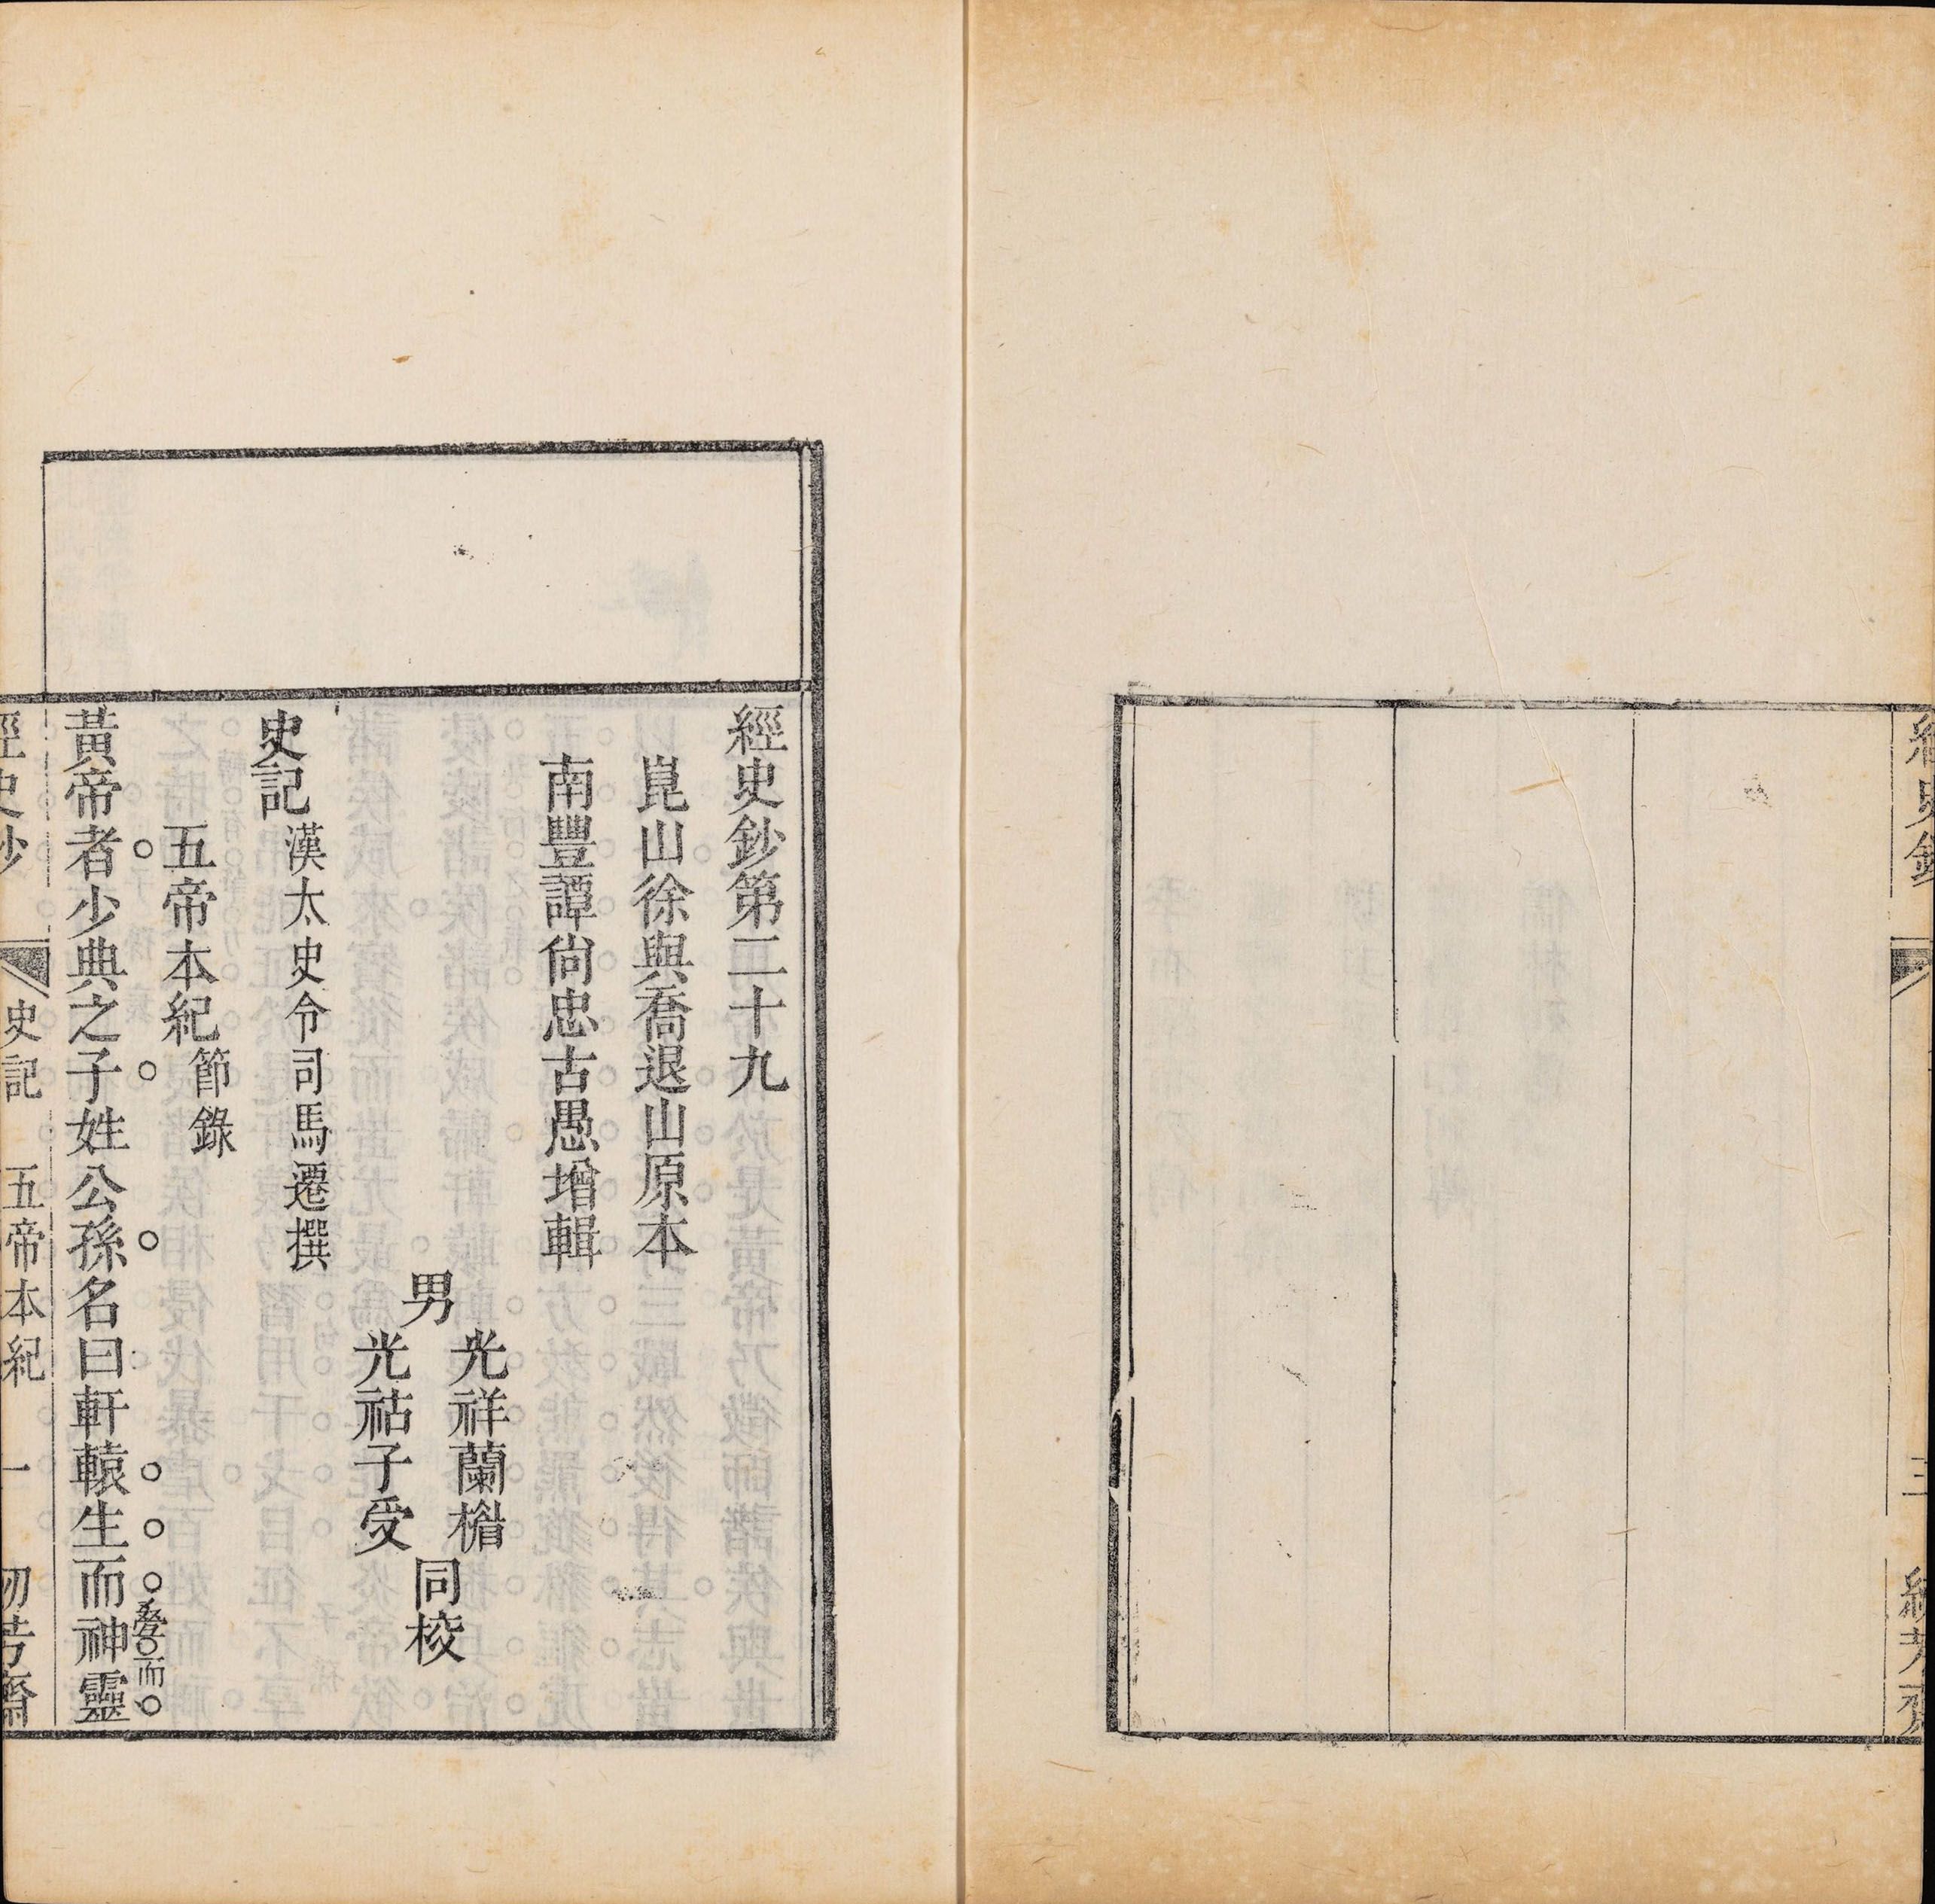 經史鈔　三　紉芳齋
經史鈔第二十九
崑山徐與喬退山原本
南豐譚尙忠古愚增輯
男
光祥蘭楷
光祜子受
同校
史記漢太史令司馬遷撰
五帝本紀節錄
叠而
黃帝者少典之子姓公孫名曰軒轅生而神靈
經史鈔　史記　五帝本紀　一　紉芳齋